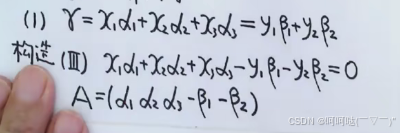 (1) γ = x₁α₁+x₂α₂+x₃α₃ = y₁β₁+y₂β₂
构造 (Ⅲ) x₁α₁+x₂α₂+x₃α₃-y₁β₁-y₂β₂=0
A=(α₁ α₂ α₃ -β₁ -β₂)
CSDN @呵呵哒(￣▽￣)"